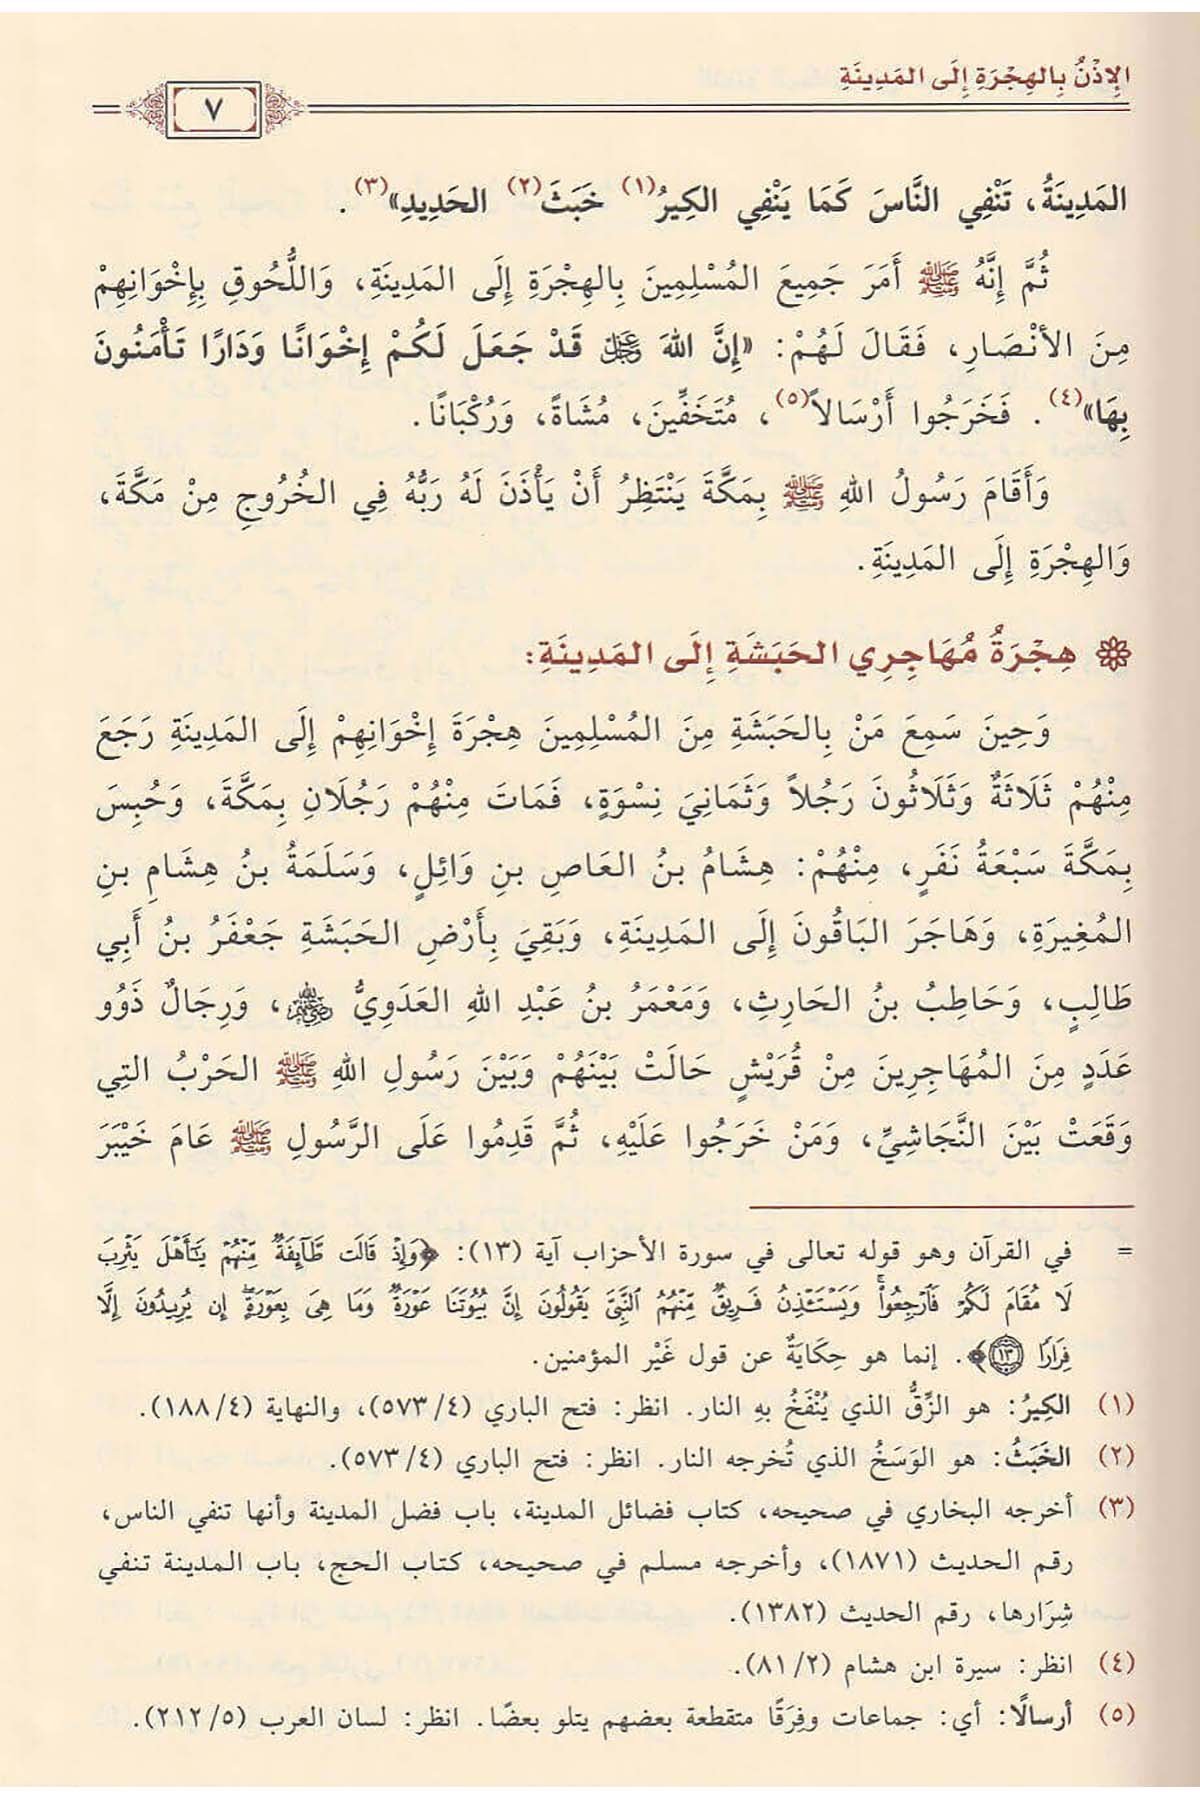 الإِذْنُ بِالهِجْرَةِ إِلَى المَدِينَةِ
٧
المَدِينَةُ، تَنْفِي النَّاسَ كَمَا يَنْفِي الكِيرُ(١) خَبَثَ(٢) الحَدِيدِ»(٣).
ثُمَّ إِنَّهُ ﷺ أَمَرَ جَمِيعَ المُسْلِمِينَ بِالهِجْرَةِ إِلَى المَدِينَةِ، وَاللُّحُوقِ بِإِخْوَانِهِمْ
مِنَ الأَنْصَارِ، فَقَالَ لَهُمْ: «إِنَّ اللهَ عَزَّ وَجَلَّ قَدْ جَعَلَ لَكُمْ إِخْوَانًا وَدَارًا تَأْمَنُونَ
بِهَا»(٤). فَخَرَجُوا أَرْسَالاً(٥)، مُتَخَفِّينَ، مُشَاةً، وَرُكْبَانًا.
وَأَقَامَ رَسُولُ اللهِ ﷺ بِمَكَّةَ يَنْتَظِرُ أَنْ يَأْذَنَ لَهُ رَبُّهُ فِي الخُرُوجِ مِنْ مَكَّةَ،
وَالهِجْرَةِ إِلَى المَدِينَةِ.
هِجْرَةُ مُهَاجِرِي الحَبَشَةِ إِلَى المَدِينَةِ:
وَحِينَ سَمِعَ مَنْ بِالحَبَشَةِ مِنَ المُسْلِمِينَ هِجْرَةَ إِخْوَانِهِمْ إِلَى المَدِينَةِ رَجَعَ
مِنْهُمْ ثَلَاثَةٌ وَثَلَاثُونَ رَجُلاً وَثَمَانِيَ نِسْوَةٍ، فَمَاتَ مِنْهُمْ رَجُلَانِ بِمَكَّةَ، وَحُبِسَ
بِمَكَّةَ سَبْعَةُ نَفَرٍ، مِنْهُمْ: هِشَامُ بنُ العَاصِ بنِ وَائِلٍ، وَسَلَمَةُ بنُ هِشَامِ بنِ
المُغِيرَةِ، وَهَاجَرَ البَاقُونَ إِلَى المَدِينَةِ، وَبَقِيَ بِأَرْضِ الحَبَشَةِ جَعْفَرُ بنُ أَبِي
طَالِبٍ، وَحَاطِبُ بنُ الحَارِثِ، وَمَعْمَرُ بنُ عَبْدِ اللهِ العَدَوِيُّ رضي الله عنهم، وَرِجَالٌ ذَوُو
عَدَدٍ مِنَ المُهَاجِرِينَ مِنْ قُرَيْشٍ حَالَتْ بَيْنَهُمْ وَبَيْنَ رَسُولِ اللهِ ﷺ الحَرْبُ التِي
وَقَعَتْ بَيْنَ النَّجَاشِيِّ، وَمَنْ خَرَجُوا عَلَيْهِ، ثُمَّ قَدِمُوا عَلَى الرَّسُولِ ﷺ عَامَ خَيْبَرَ
= في القرآن وهو قوله تعالى في سورة الأحزاب آية (١٣): ﴿وَإِذْ قَالَت طَّآئِفَةٌ مِّنْهُمْ يَٰٓأَهْلَ يَثْرِبَ
لَا مُقَامَ لَكُمْ فَٱرْجِعُوا۟ وَيَسْتَـْٔذِنُ فَرِيقٌ مِّنْهُمُ ٱلنَّبِىَّ يَقُولُونَ إِنَّ بُيُوتَنَا عَوْرَةٌ وَمَا هِىَ بِعَوْرَةٍ إِن يُرِيدُونَ إِلَّا
فِرَارًا ١٣﴾. إنما هو حِكَايَةٌ عن قول غَيْر المؤمنين.
(١) الكِيرُ: هو الزِّقُّ الذي يُنْفَخُ بهِ النار. انظر: فتح الباري (٤/٥٧٣)، والنهاية (٤/١٨٨).
(٢) الخَبَثُ: هو الوَسَخُ الذي تُخرجه النار. انظر: فتح الباري (٤/٥٧٣).
(٣) أخرجه البخاري في صحيحه، كتاب فضائل المدينة، باب فضل المدينة وأنها تنفي الناس،
رقم الحديث (١٨٧١)، وأخرجه مسلم في صحيحه، كتاب الحج، باب المدينة تنفي
شِرَارها، رقم الحديث (١٣٨٢).
(٤) انظر: سيرة ابن هشام (٢/٨١).
(٥) أرسالًا: أي: جماعات وفِرَقًا متقطعة بعضهم يتلو بعضًا. انظر: لسان العرب (٥/٢١٢).